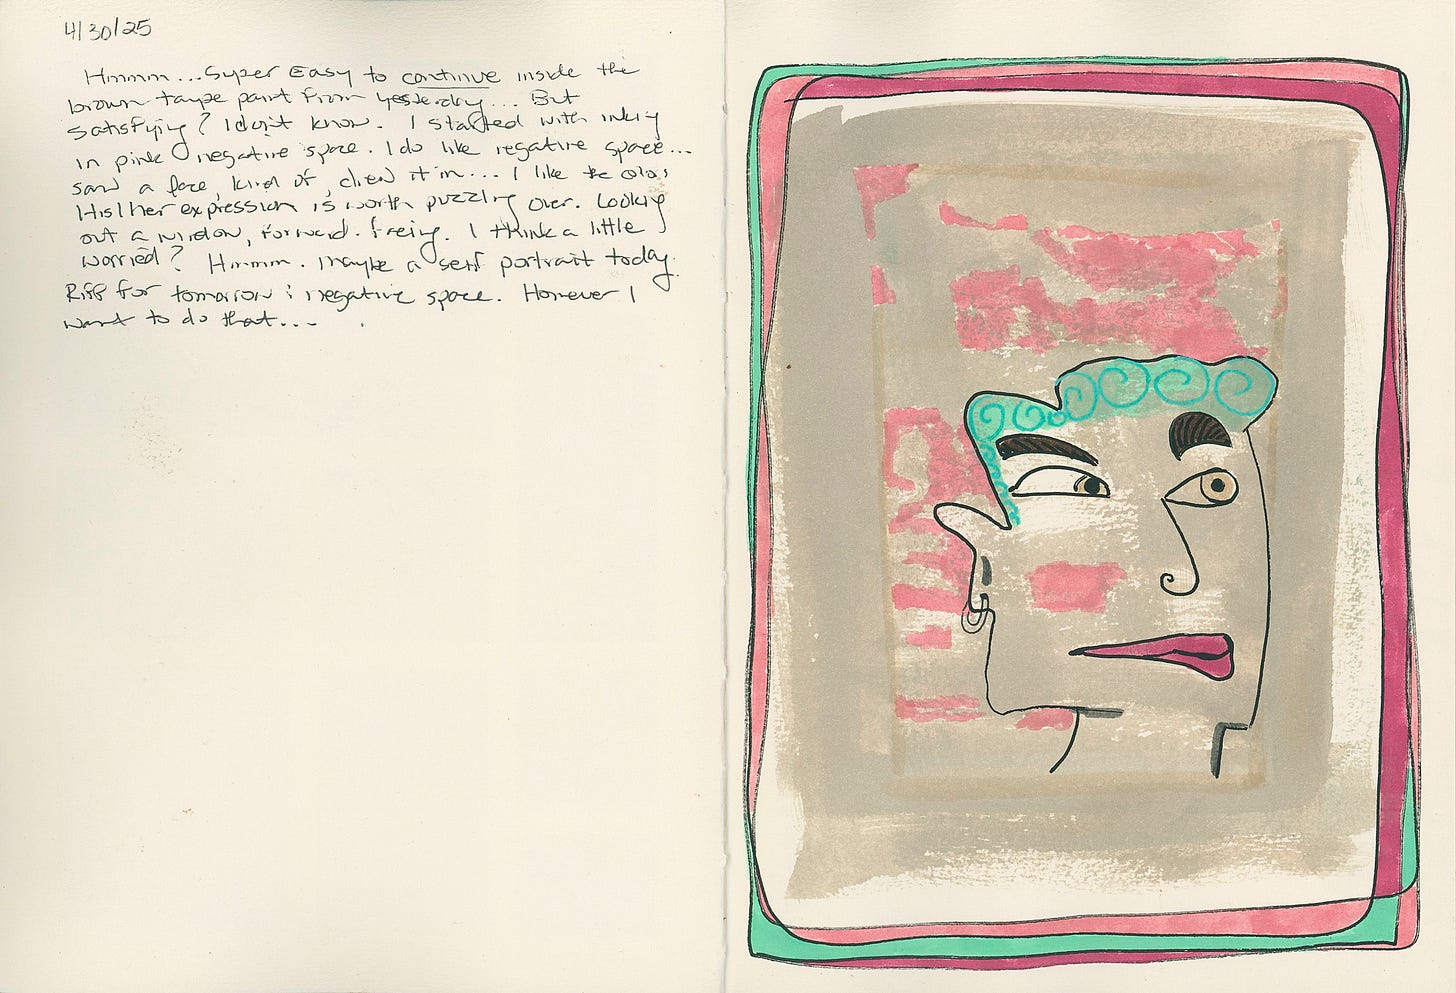 4/30/25
Hmmm... Super Easy to continue inside the
brown taupe paint from yesterday... But
satisfying? I don't know. I started with inking
in pink negative space. I do like negative space...
saw a face, kind of, drew it in... I like the colors
His/her expression is worth puzzling over. Looking
out a window, forward-facing. I think a little
worried? Hmmm. maybe a self portrait today.
Riff for tomorrow: negative space. However I
want to do that...